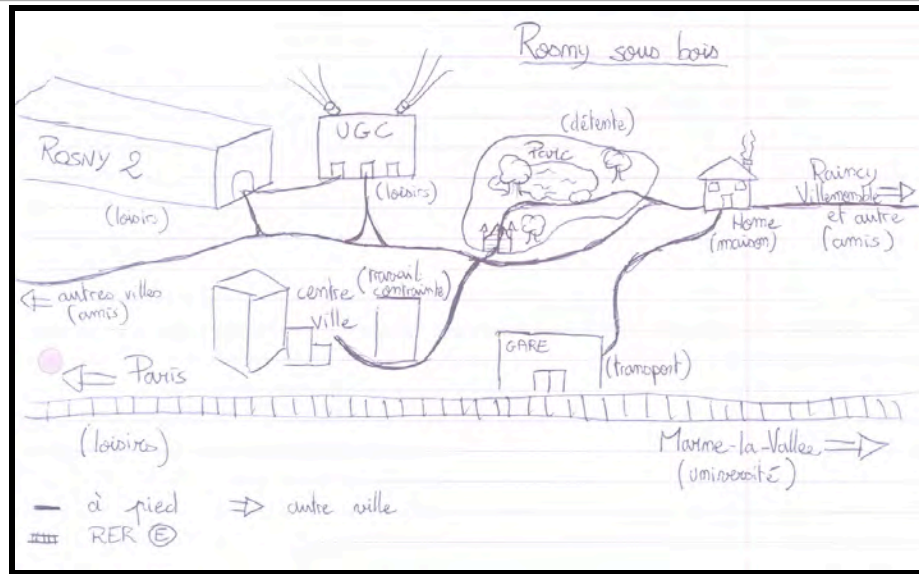 Rosny sous bois
UGC
(loisirs)
ROSNY 2
(loisirs)
(détente)
Parc
Home
(maison)
Raincy
Villemomble
et autre
(amis)
autres villes
(amis)
centre
ville
(travail
contrainte)
GARE
(transport)
Paris
(loisirs)
Marne-la-Vallee
(université)
à pied
autre ville
RER E